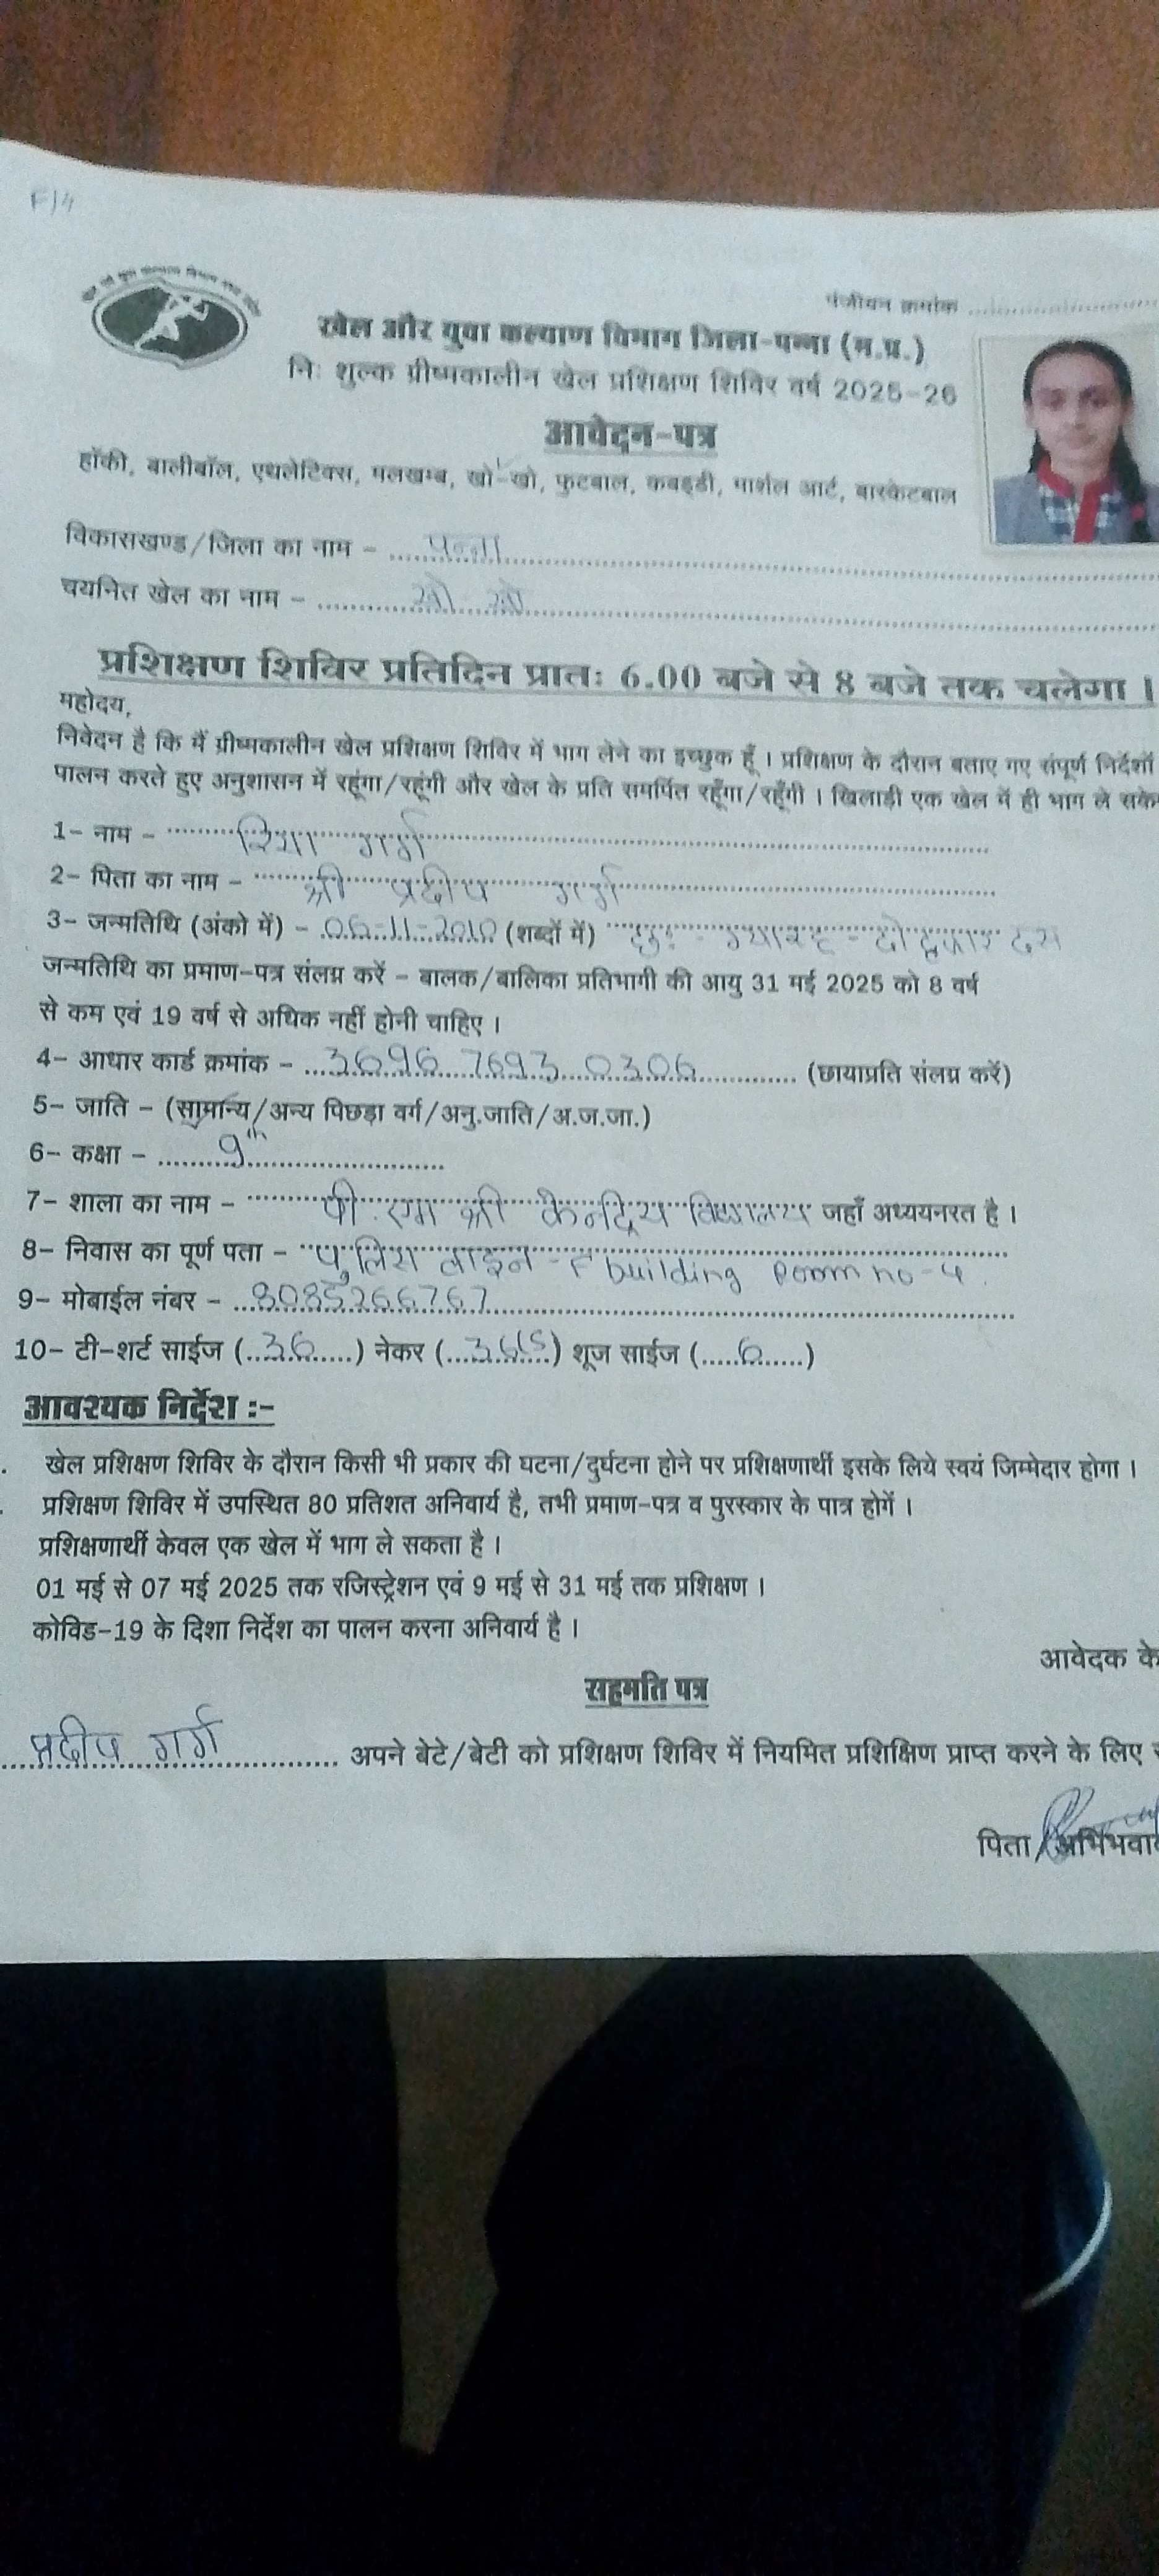 F/4
पंजीयन क्रमांक ....................
खेल और युवा कल्याण विभाग जिला-पन्ना (म.प्र.)
निः शुल्क ग्रीष्मकालीन खेल प्रशिक्षण शिविर वर्ष 2025-26
आवेदन-पत्र
हॉकी, बालीबॉल, एथलेटिक्स, मलखम्ब, खो-खो, फुटबाल, कबड्डी, मार्शल आर्ट, बास्केटबाल
विकासखण्ड/जिला का नाम - पन्ना
चयनित खेल का नाम - खो खो
प्रशिक्षण शिविर प्रतिदिन प्रातः 6.00 बजे से 8 बजे तक चलेगा ।
महोदय,
निवेदन है कि मैं ग्रीष्मकालीन खेल प्रशिक्षण शिविर में भाग लेने का इच्छुक हूँ । प्रशिक्षण के दौरान बताए गए संपूर्ण निर्देशों
पालन करते हुए अनुशासन में रहूंगा/रहूंगी और खेल के प्रति समर्पित रहूँगा/रहूँगी । खिलाड़ी एक खेल में ही भाग ले सके
1- नाम - रिया गर्ग
2- पिता का नाम - श्री प्रदीप गर्ग
3- जन्मतिथि (अंको में) - 06-11-2010 (शब्दों में) छः - ग्यारह - दो हजार दस
जन्मतिथि का प्रमाण-पत्र संलग्न करें - बालक/बालिका प्रतिभागी की आयु 31 मई 2025 को 8 वर्ष
से कम एवं 19 वर्ष से अधिक नहीं होनी चाहिए ।
4- आधार कार्ड क्रमांक - 3696 7693 0306 (छायाप्रति संलग्न करें)
5- जाति - (सामान्य/अन्य पिछड़ा वर्ग/अनु.जाति/अ.ज.जा.)
6- कक्षा - 9th
7- शाला का नाम - पी. एम श्री केन्द्रिय विद्यालय जहाँ अध्ययनरत है ।
8- निवास का पूर्ण पता - पुलिस लाइन - F building Room no - 4
9- मोबाईल नंबर - 8085266767
10- टी-शर्ट साईज (36) नेकर (36(S) शूज साईज (6)
आवश्यक निर्देश :-
खेल प्रशिक्षण शिविर के दौरान किसी भी प्रकार की घटना/दुर्घटना होने पर प्रशिक्षणार्थी इसके लिये स्वयं जिम्मेदार होगा ।
प्रशिक्षण शिविर में उपस्थित 80 प्रतिशत अनिवार्य है, तभी प्रमाण-पत्र व पुरस्कार के पात्र होगें ।
प्रशिक्षणार्थी केवल एक खेल में भाग ले सकता है ।
01 मई से 07 मई 2025 तक रजिस्ट्रेशन एवं 9 मई से 31 मई तक प्रशिक्षण ।
कोविड-19 के दिशा निर्देश का पालन करना अनिवार्य है ।
आवेदक के
सहमति पत्र
प्रदीप गर्ग अपने बेटे/बेटी को प्रशिक्षण शिविर में नियमित प्रशिक्षिण प्राप्त करने के लिए
पिता/अभिभवा